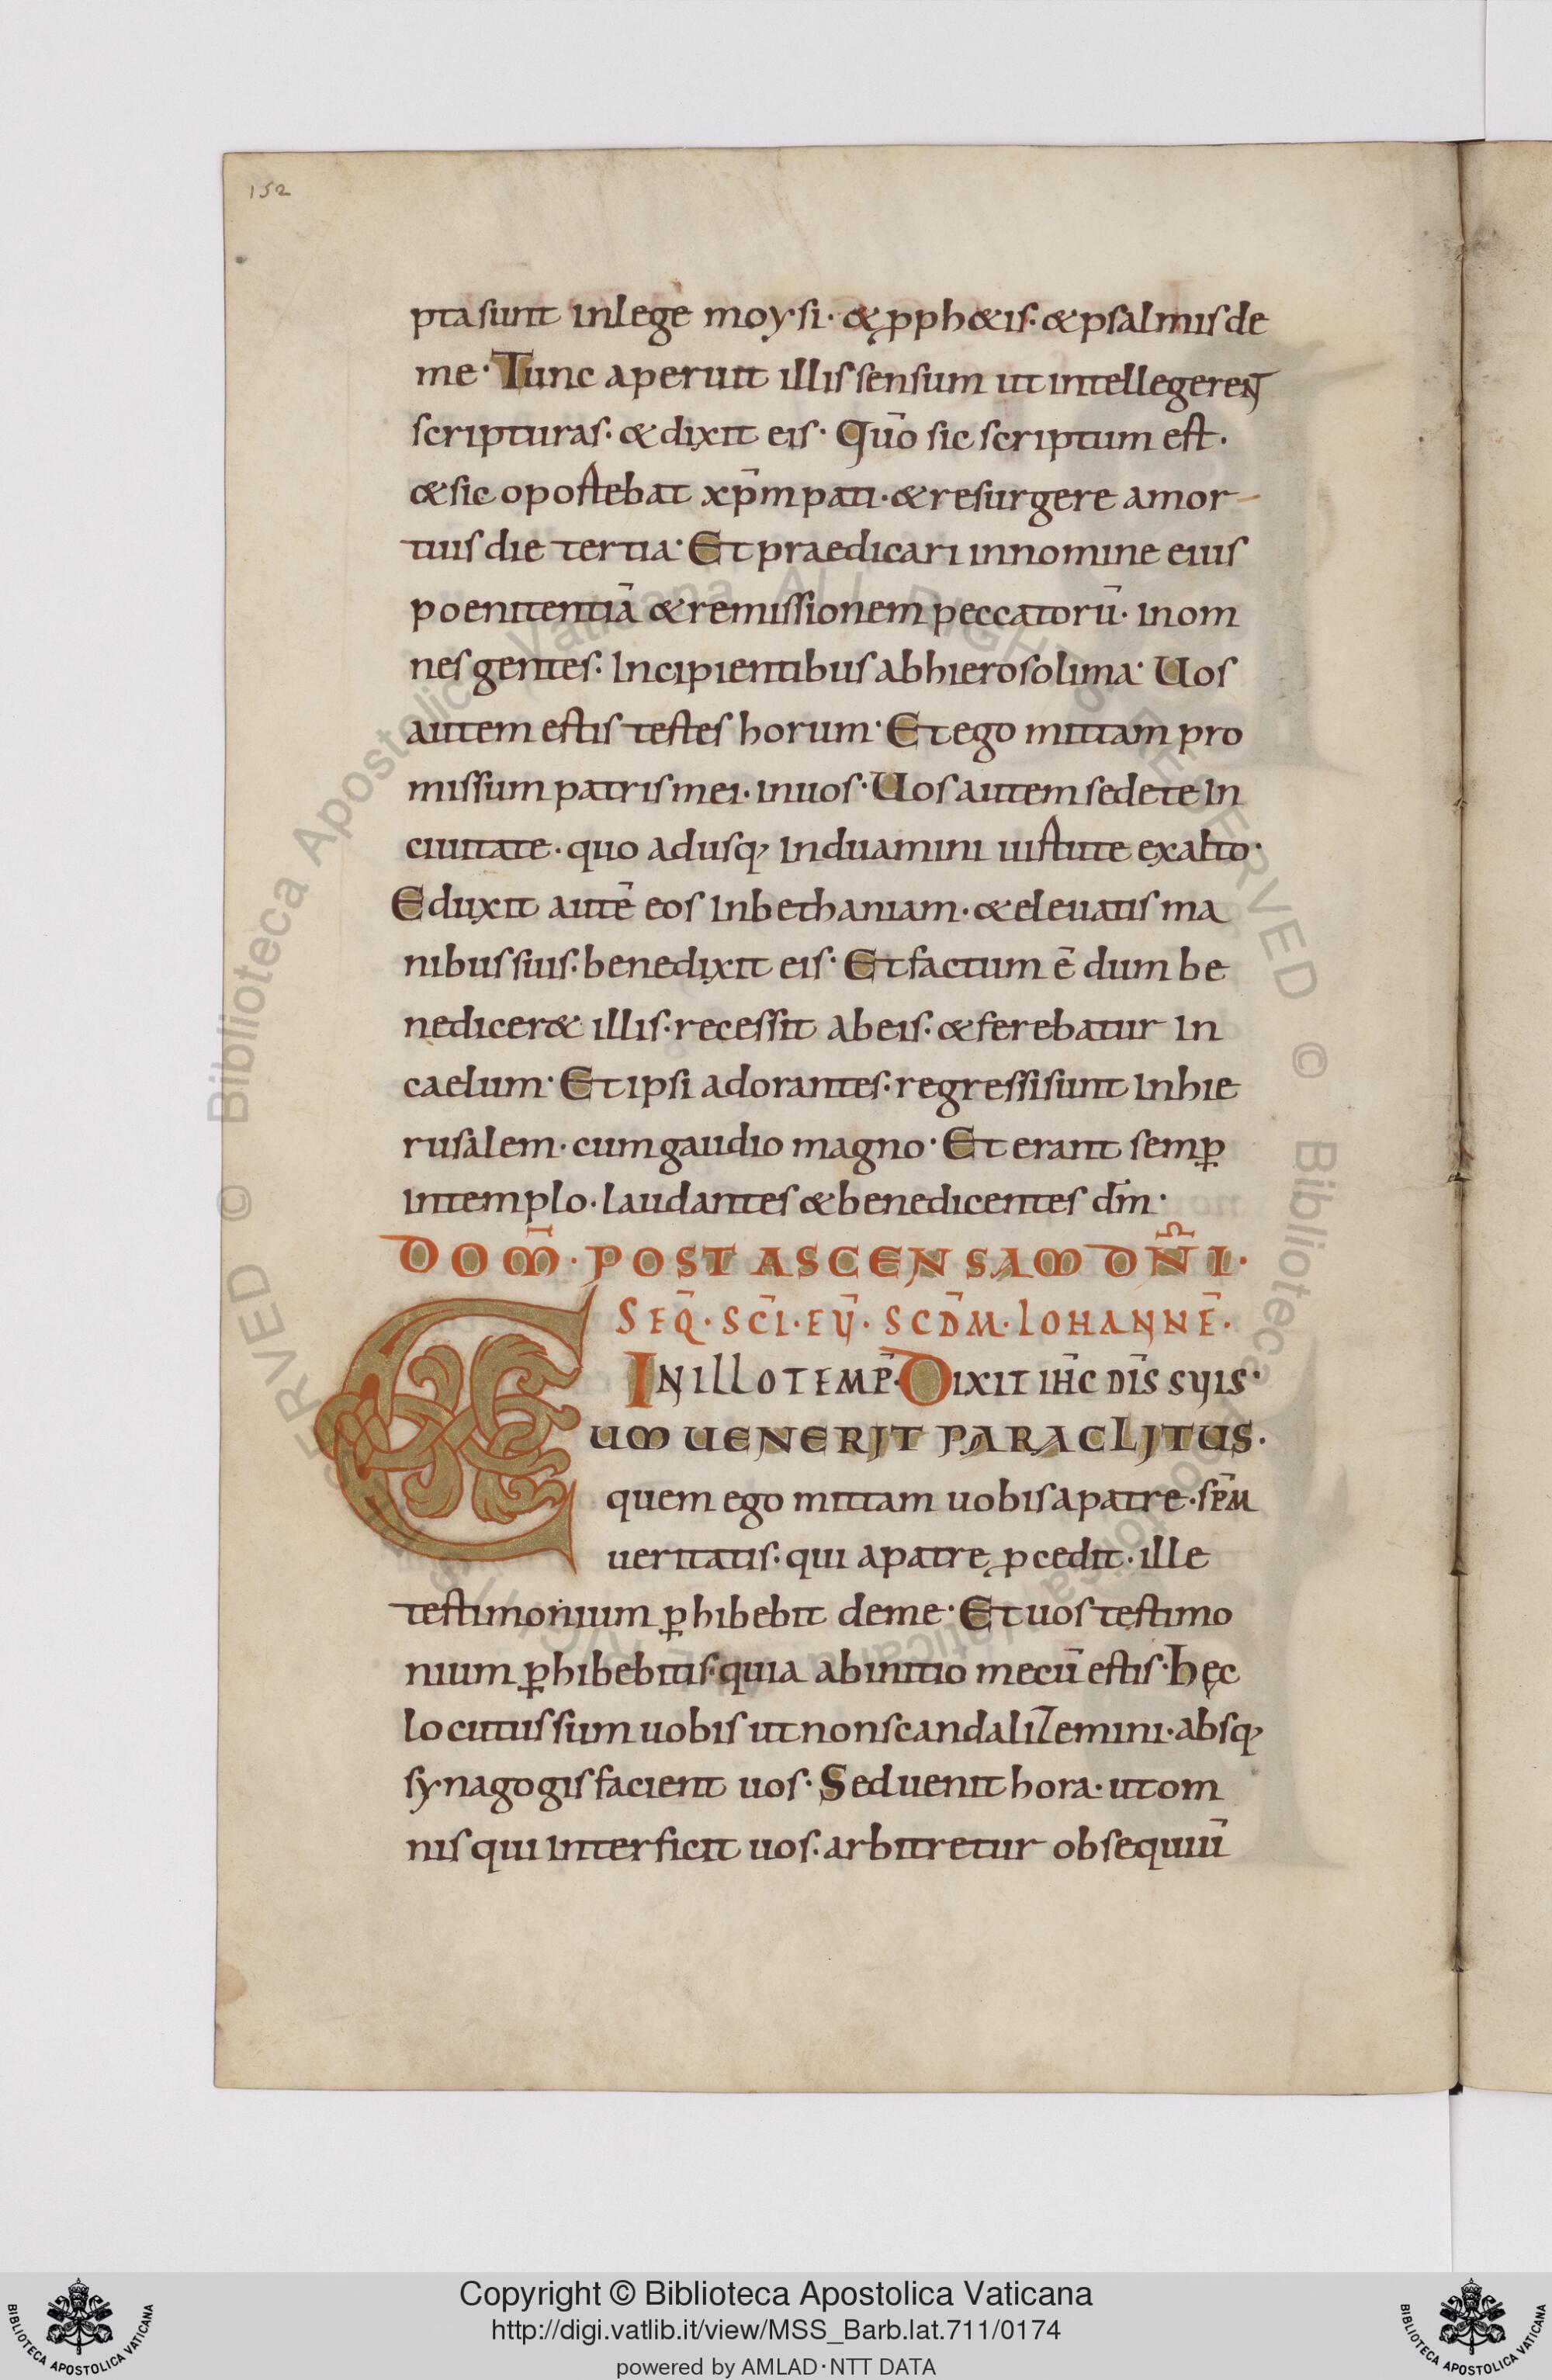 152
pta sunt in lege moysi· & ꝓph&is· & psalmis de
me· Tunc aperuit illis sensum ut intellegerent̄
scripturas· & dixit eis· Qūo sic scriptum est·
& sic oportebat xp̄m pati· & resurgere a mor-
tuis die tertia· Et praedicari in nomine eius
poenitentiā & remissionem peccatorū· in om
nes gentes· Incipientibus ab hierosolima· Uos
autem estis testes horum· Et ego mittam pro
missum patris mei· in uos· Uos autem sedete in
ciuitate· quo adusq, induamini uirtute ex alto·
Eduxit autē eos in bethaniam· & eleuatis ma
nibus suis· benedixit eis· Et factum ē dum be
nedicer& illis· recessit ab eis· & ferebatur in
caelum· Et ipsi adorantes· regressi sunt in hie
rusalem· cum gaudio magno· Et erant semꝑ
in templo· laudantes & benedicentes dm̄·
DOM̄· POST ASCENSAM DN̄I·
SEQ̄· SCĪ· EŪ· SCDM̄· IOHANNĒ·
IN ILLO TEMP̄· DIXIT IH̄C DIS̄ SUIS·
CUM UENERIT PARACLITUS·
quem ego mittam uobis a patre· sp̄m
ueritatis· qui a patre ꝓcedit· ille
testimonium ꝑhibebit de me· Et uos testimo
nium ꝑhibebitis· quia ab initio mecū estis· Hęc
locutus sum uobis ut non scandalizemini· absq,
synagogis facient uos· Sed uenit hora· ut om
nis qui interficit uos· arbitretur obsequiū
© Biblioteca Apostolica Vaticana ALL RIGHTS RESERVED © Biblioteca Apostolica Vaticana ALL RIGHTS RESERVED
Copyright © Biblioteca Apostolica Vaticana
http://digi.vatlib.it/view/MSS_Barb.lat.711/0174
powered by AMLAD·NTT DATA
BIBLIOTECA APOSTOLICA VATICANA
BIBLIOTECA APOSTOLICA VATICANA